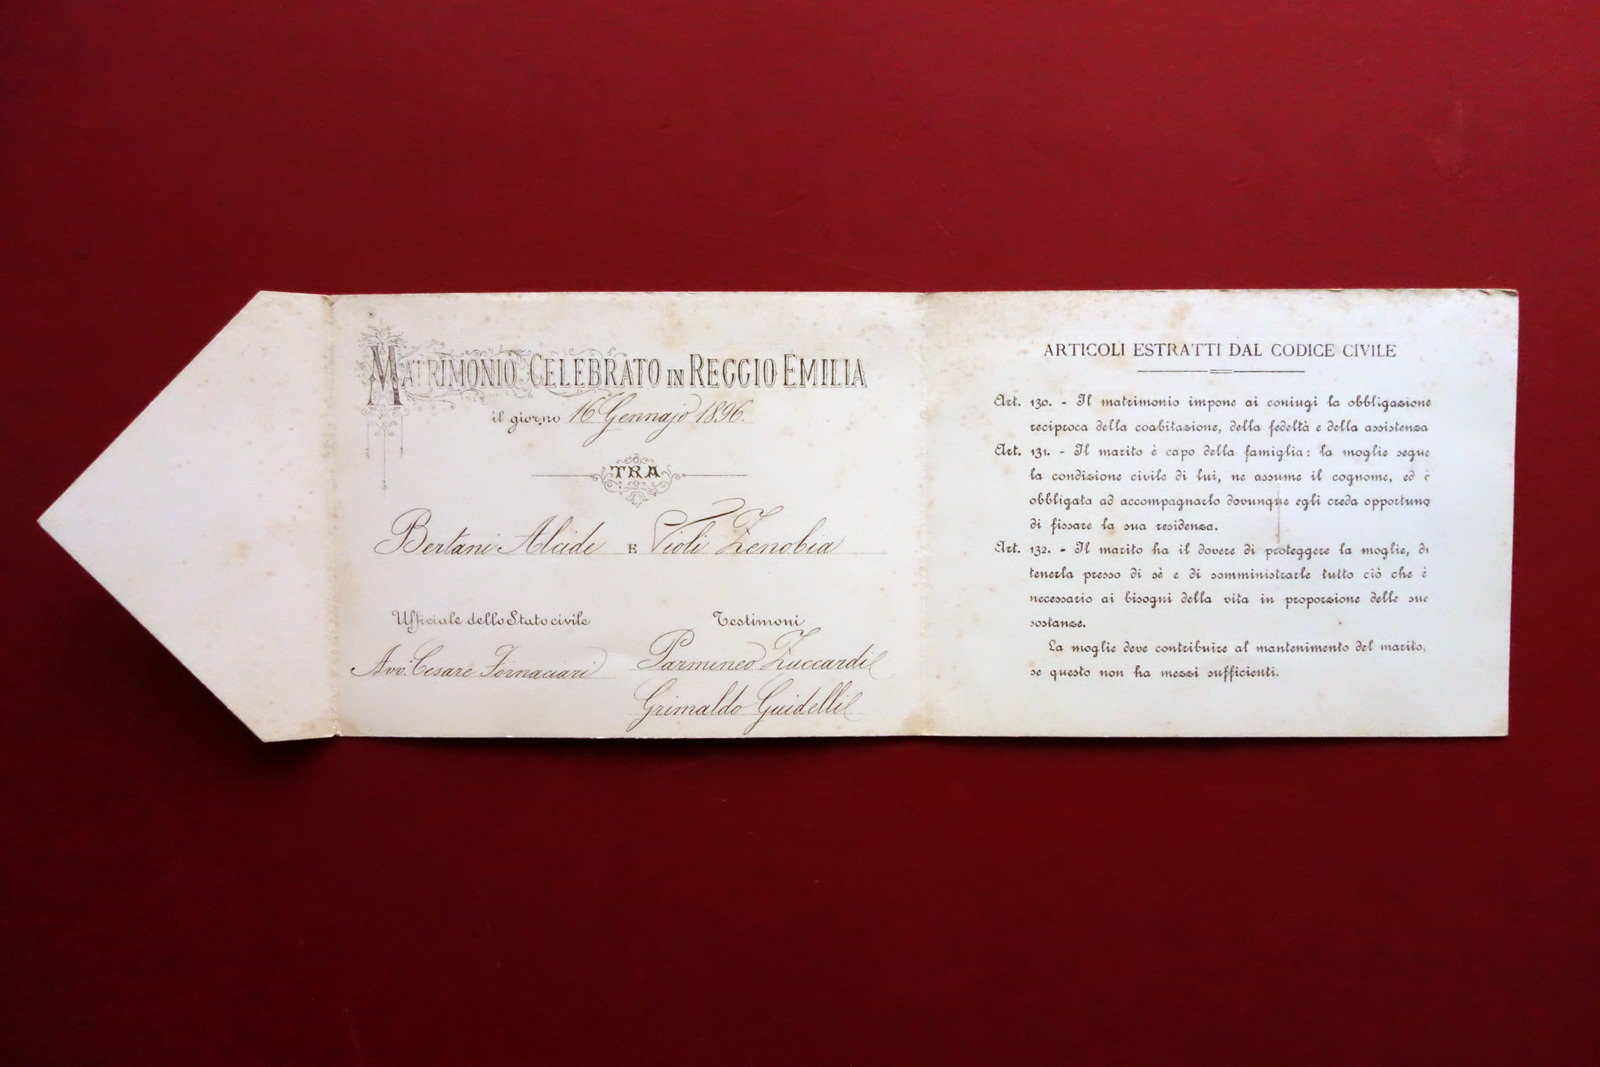 MATRIMONIO CELEBRATO IN REGGIO EMILIA
il giorno 16 Gennajo 1896.
TRA
Bertani Alcide E Violi Zenobia
Ufficiale dello Stato civile
Avv. Cesare Fornaciari
Testimoni
Parmineo Zuccardi
Grimaldo Guidelli
ARTICOLI ESTRATTI DAL CODICE CIVILE
Art. 130. - Il matrimonio impone ai coniugi la obbligazione
reciproca della coabitazione, della fedeltà e della assistenza
Art. 131. - Il marito è capo della famiglia: la moglie segue
la condizione civile di lui, ne assume il cognome, ed è
obbligata ad accompagnarlo dovunque egli creda opportuno
di fissare la sua residenza.
Art. 132. - Il marito ha il dovere di proteggere la moglie, di
tenerla presso di sè e di somministrarle tutto ciò che è
necessario ai bisogni della vita in proporzione delle sue
sostanze.
La moglie deve contribuire al mantenimento del marito,
se questo non ha mezzi sufficienti.